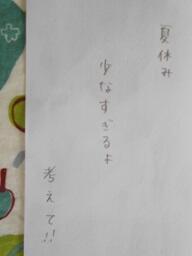 夏休み
少なすぎるよ
考えて!!